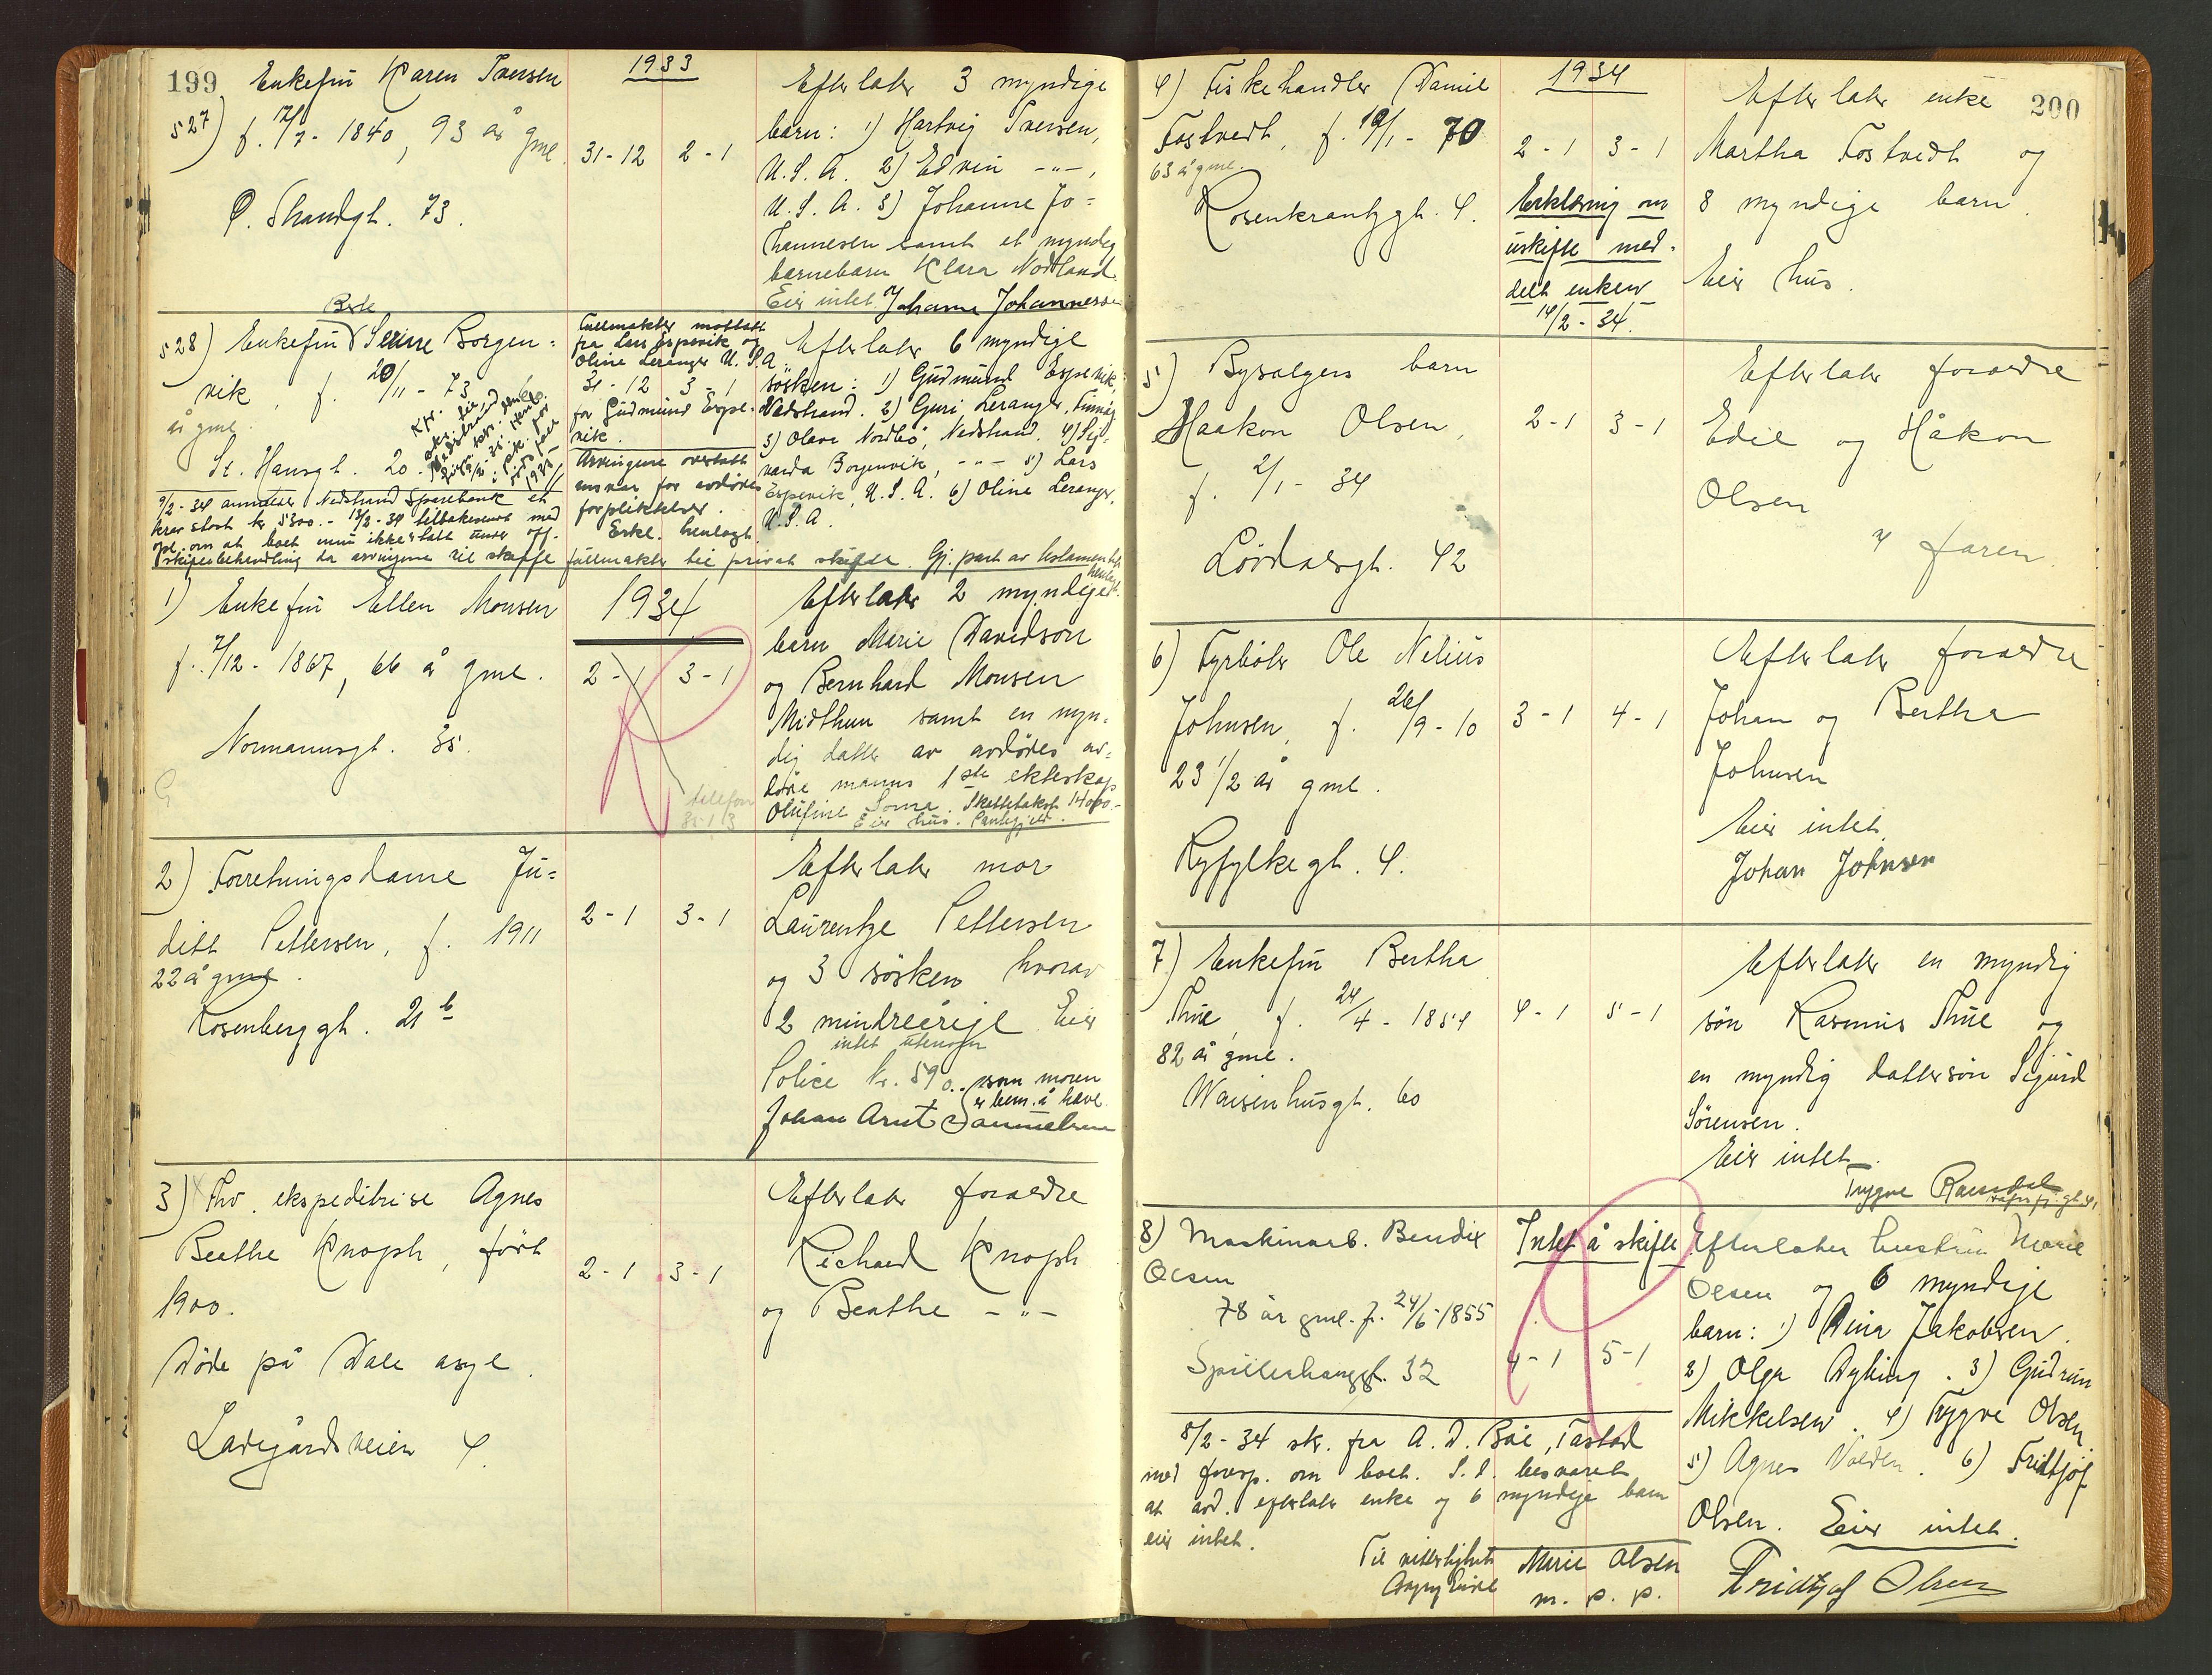 199
1933
527) Enkefru Karen Iversen
f. 12/7 - 1840, 93 år gml.
Ø. Strandgt. 73.
31-12 2-1
Efterlater 3 myndige
barn: 1) Hartvig Iversen,
U.S.A. 2) Edvin -"-,
U.S.A. 3) Johanne Jo=
hannesen samt et myndig
barnebarn Klara Nordland.
Eier intet. Johanne Johannessen
Berte
528) Enkefru Serine Borgen=
vik, f. 20/11 - 73
år gml.
St. Hansgt. 20.
9/2-34 anmelder Nedstrand Sparebank et
krav stort kr 5300.- 13/2-34 tilbakesendt med
opl. om at boet ennu ikke er tatt under off.
skiftebehandling da arvingene vil skaffe fullmakter til privat skifte. Gj. part av testamentet
henlagt.
Fullmakter mottatt
fra Lars Espevik og
Oline Leranger U.S.A.
31-12 3-1
for Gudmund Espe-
vik.
Arvingene overtatt
ansvar for avdødes
forpliktelser.
Erkl. henlagt.
Efterlater 6 myndige
søsken: 1) Gudmund Espevik,
Nedstrand. 2) Guri Leranger,
3) Olave Nordbø, Nedstrand. 4) Sy-
varda Borgenvik, -"- 5) Lars
Espevik, U.S.A. 6) Oline Leranger,
U.S.A.
1934
1) Enkefru Ellen Monsen
f. 7/12 - 1867, 66 år gml.
Normannsgt. 35.
2-1 3-1
telefon
Efterlater 2 myndige
barn Marie Davidson
og Bernhard Monsen
Midthun samt en myn-
dig datter av avdødes av-
døde manns 1ste ekteskap
Olufine Soma. Skattetakst 14000.-
Eier hus. Pantegjeld.
2) Forretningsdame Ju=
ditt Pettersen, f. 1911
22 år gml.
Rosenberggt. 21 b
2-1 3-1
Efterlater mor
Laurentze Pettersen
og 3 søsken hvorav
2 mindreårige. Eier
intet utenom
Police kr. 590.- som moren
er bem. å heve.
Johan Arnt Samuelsen
3) Fhv. ekspeditrise Agnes
Beathe Knoph, født
1900.
Døde på Dale asyl.
Ladegårdsveien 4
2-1 3-1
Efterlater foreldre
Richard Knoph
og Beathe -"-
200
1934
4) Fiskehandler Daniel
Fostvedt, f. 19/1 - 70
63 år gml.
Rosenkrantzgt. 4.
2-1 3-1
Erklæring om
uskifte med-
delt enken
14/2-34.
Efterlater enke
Martha Fostvedt og
8 myndige barn.
Eier hus.
5) Bysalgers barn
Haakon Olsen,
f. 2/1 - 34
Lövdalsgt. 42
2-1 3-1
Efterlater foreldre
Edil og Håkon
Olsen
faren.
6) Fyrbøter Ole Nilius
Johnsen, f. 26/9-10
23 1/2 år gml.
Ryfylkegt. 4.
3-1 4-1
Efterlater foreldre
Johan og Bertha
Johnsen
Eier intet.
Johan Johnsen
7) Enkefru Bertha
Thue, f. 24/4 - 1851
82 år gml.
Waisenhusgt. 60
4-1 5-1
Efterlater en myndig
sön Rasmus Thue og
en myndig dattersön Sigurd
Sørensen.
Eier intet.
Trygve
8) Maskinarb. Bendix
Olsen
78 år gml. f. 24/6-1855
Spilderhauggt. 32
Intet å skifte
4-1 5-1
8/2-34 skr. fra A.D. Bøe, Tastad
med foresp. om boet. S.d. besvaret
at avd. efterlater enke og 6 myndige barn
eier intet.
Til vitterlighet:
Marie Olsen
m. p. p.
Efterlater hustru Marie
Olsen og 6 myndige
barn: 1) Dina Jakobsen.
2) Olga Dyhing. 3) Gudrun
Mikkelsen. 4) Trygve Olsen
5) Agnes Volden. 6) Fridtjof
Olsen. Eier intet.
Fridtjof Olsen